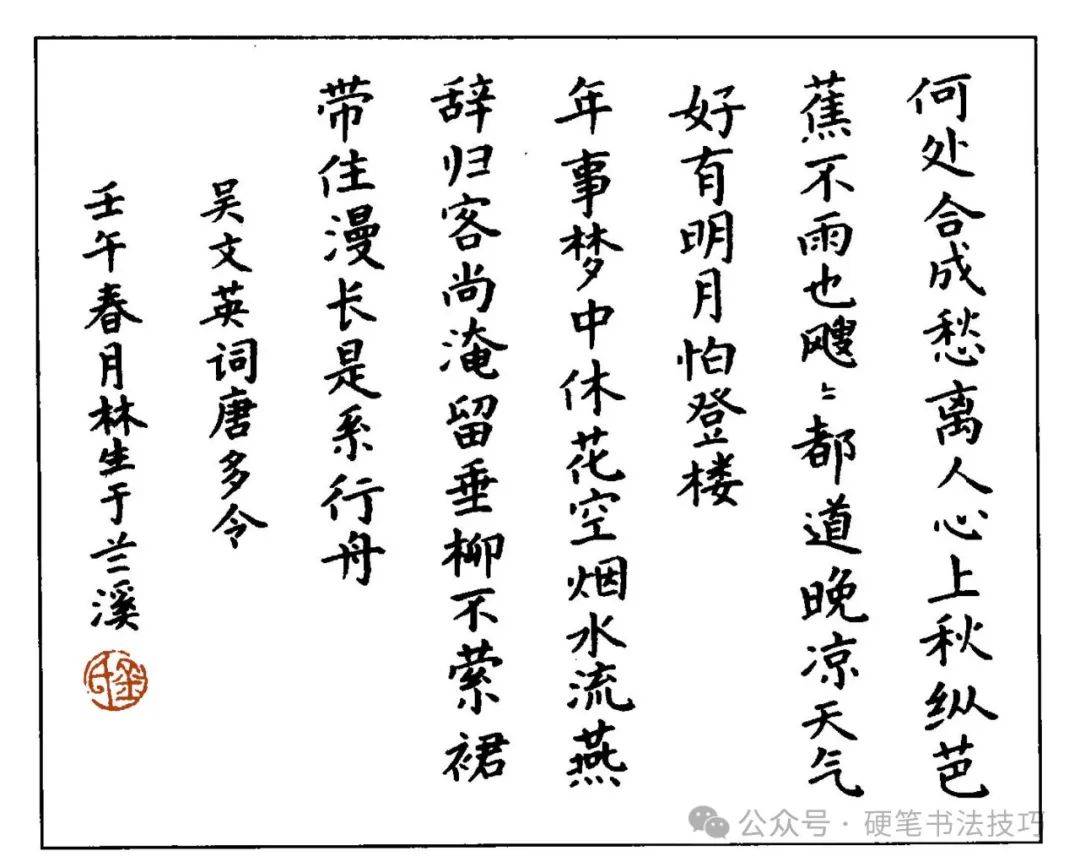 何处合成愁离人心上秋纵芭
蕉不雨也飕〻都道晚凉天气
好有明月怕登楼
年事梦中休花空烟水流燕
辞归客尚淹留垂柳不萦裙
带住漫长是系行舟
吴文英词唐多令
壬午春月林生于兰溪
公众号·硬笔书法技巧